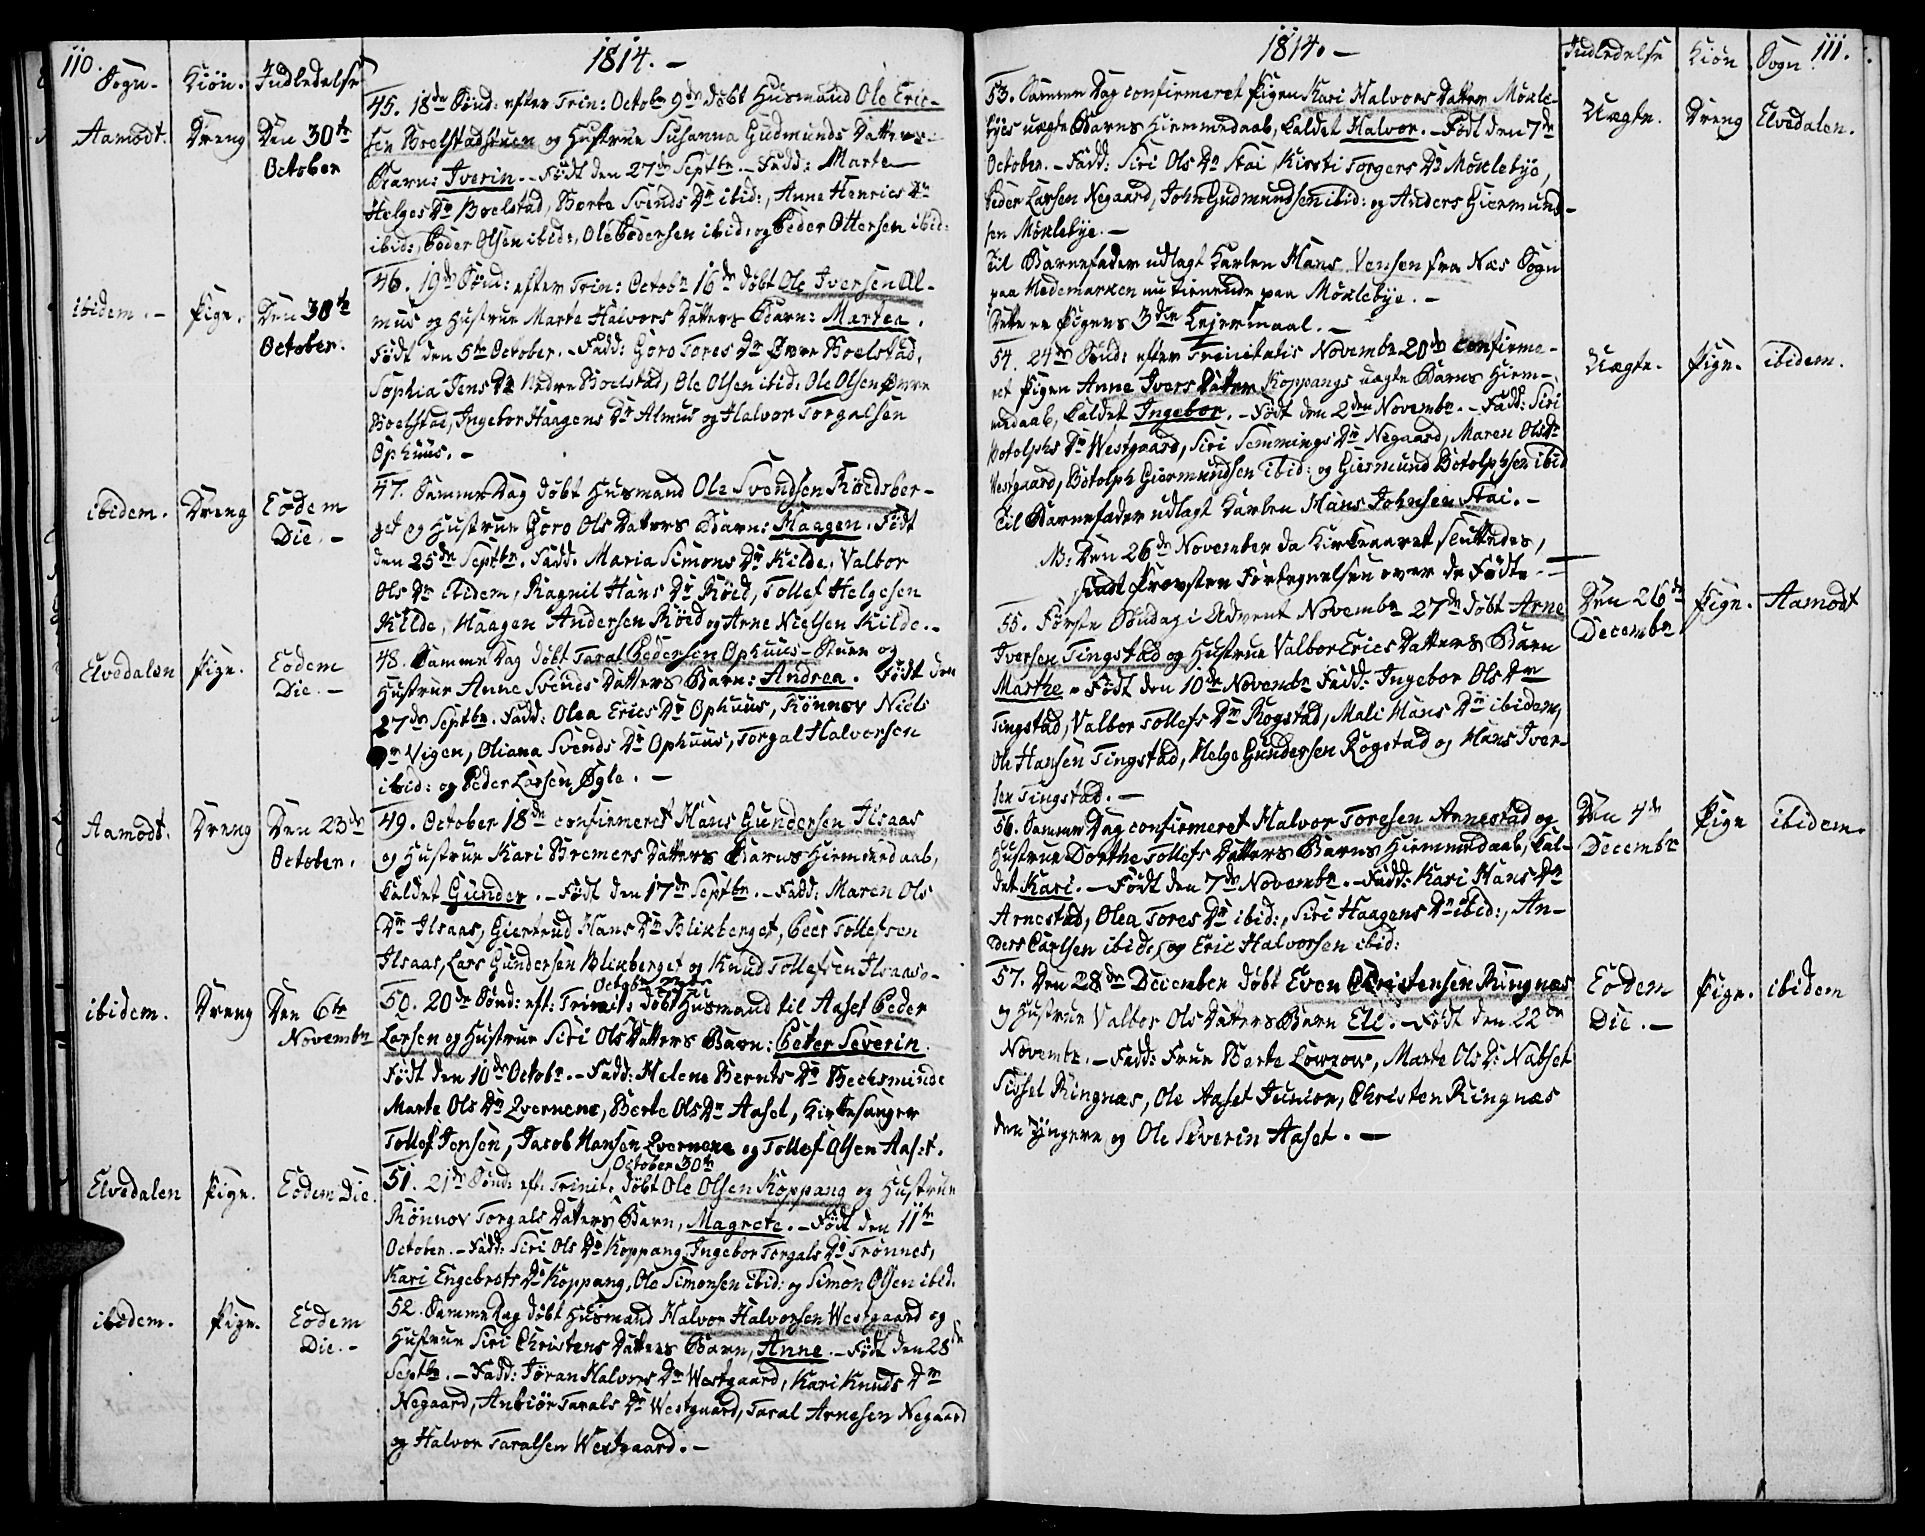 110.
Sogn. Kiön. Indledelse 1814. –
Aamodt. Dreng Den 30te October
45. 18de Sönd: efter Trin: Octobr 9de döbt Husmand Ole Eric-
sen Boelstadhöuen og Hustrue Susanna Gudmunds Datters
Barn: Iverin. – Födt den 27de Septbr. – Fadd: Marte
Helges Dr Boelstad, Berte Svends Dr ibid:, Anne Henrics Dr
ibid:, Peder Olsen ibid:, Ole Pedersen ibid: og Peder Ottersen ibid:
ibidem. – Pige. Den 30te October.
46. 19de Sönd: efter Trin: Octobr 16de döbt Ole Iversen Al-
mus og Hustrue Marte Halvors Datters Barn: Martea.
Födt den 5te October. – Fadd: Goro Tores Dr Övre Boelstad,
Sophia Jens Dr Nedre Boelstad, Ole Olsen ibid: Ole Olsen Övre
Boelstad, Ingebor Haagens Dr Almus og Halvor Torgalsen
Ophuus. –
ibidem. Dreng Eodem Die. –
47. Samme Dag döbt Husmand Ole Svendsen Röedsber-
get og Hustrue Goro Ols Datters Barn: Haagen. Födt
den 25de Septbr. Fadd: Maria Simons Dr Kilde, Valbor
Ols Dr ibidem, Ragnil Hans Dr Röed, Tollef Helgesen
Kilde, Haagen Andersen Röed og Arne Nielsen Kilde. –
Elvedalen Pige. Eodem Die. –
48. Samme Dag döbt Taral Pedersen Ophuus-Stuen og
Hustrue Anne Svends Datters Barn: Andrea. Födt den
27de Septbr. Fadd: Olea Erics Dr Ophuus, Rönnov Niels
Dr Vigen, Oliana Svends Dr Ophuus, Torgal Halvorsen
ibid: og Peder Larsen Ögle. –
Aamodt. Dreng Den 23de October.
49. October 18de confirmeret Hans Gundersen Ilsaas
og Hustrue Kari Bremers Datters Barns Hiemmedaab,
kaldet Gunder. – Födt den 17de Septbr. – Fadd: Maren Ols
Dr Ilsaas, Giertrud Hans Dr Blikberget, Peer Tollefsen
Ilsaas, Lars Gundersen Blikberget og Knud Tollefsen Ilsaas. –
ibidem. Dreng Den 6te Novembr
Octobr 23de
50. 20de Sönd: eft: Trinit: döbt Husmand til Aaset Peder
Larsen og Hustrue Siri Ols Datters Barn: Peter Severin.
Födt den 10de Octobr. – Fadd: Helene Bernts Dr Bechsminde
Marte Ols Dr Qvernene, Berte Ols Dr Aaset, Kirkesanger
Tollef Jensen, Jacob Hansen Qvernene og Tollef Olsen Aaset.
Elvedalen Pige. Eodem Die.
October 30te
51. 21de Sönd: eft: Trinit: döbt Ole Olsen Koppang og Hustrue
Rönnov Torgals Datters Barn, Magrete. – Födt den 11te
October. – Fadd: Siri Ols Dr Koppang, Ingebor Torgals Dr Trönnes,
Kari Engebrets Dr Koppang, Ole Simonsen ibid: og Simon Olsen ibid.
ibidem. Pige. Eodem Die. –
52. Samme Dag döbt Husmand Halvor Halvorsen Westgaard og
Hustrue Siri Christens Datters Barn, Anne. – Födt den 28de
Septbr. – Fadd: Jöran Halvors Dr Westgaard, Kari Knuds Dr
Negaard, Anbiör Tarals Dr Westgaard, Taral Arnesen Negaard
og Halvor Taralsen Westgaard. –
1814. – Indledelse Kiön Sogn 111.
53. Samme Dag confirmeret Pigen Kari Halvors Datter Möxle-
byes uægte Barns Hiemmedaab, kaldet Halvor. – Födt den 7de
October. – Fadd: Siri Ols Dr Stai, Kirsti Torgers Dr Möxlebye,
Peder Larsen Negaard, John Gudmundsen ibid: og Anders Giermund-
sen Möxlebye. –
Til Barnefader udlagt Karlen Hans Jensen fra Næs Sogn
paa Hedemarken nu tienende paa Möxlebye. –
Dette er Pigens 3die Lejermaal. –
Uægte. Dreng Elvedalen.
54. 24de Sönd: efter Trinitatis Novembr 20de confirme-
ret Pigen Anne Ivers Datter Koppangs uægte Barns Hiem-
medaab, kaldet Ingebor. – Födt den 2den Novembr. – Fadd: Siri
Botolphs Dr Westgaard, Siri Semmings Dr Negaard, Maren Ols Dr
Westgaard, Botolph Giermundsen ibid: og Giermund Botolphsen ibid
Til Barnefader udlagt Karlen Hans Johnsen Stai. –
Uægte. Pige. ibidem.
NB: Den 26de November da Kirkeaaret sluttedes,
sendt Provsten Fortegnelsen over de Födte. –
55. Förste Söndag i Advent Novembr 27de döbt Arne
Iversen Tingstad og Hustrue Valbor Erics Datters Barn
Marthe – Födt den 10de Novembr Fadd: Ingebor Ols Dr
Tingstad, Valbor Tollefs Dr Rogstad, Mali Hans Dr ibidem,
Ole Hansen Tingstad, Helge Gundersen Rogstad og Hans Iver-
sen Tingstad. –
Den 26de Decembr Pige. Aamodt
56. Samme Dag confirmeret Halvor Toresen Arnestad og
Hustrue Dorthe Tollefs Datters Barns Hiemmedaab, kal-
det Kari. – Födt den 7de Novembr. – Fadd: Kari Hans Dr
Arnestad, Olea Tores Dr ibid:, Siri Haagens Dr ibid:, An-
ders Carlsen ibid: og Eric Halvorsen ibid:
Den 4de Decembr Pige ibidem.
57. Den 28de December döbt Even Christensen Ringnæs
og Hustrue Valbor Ols Datters Barn Eli. – Födt den 22de
Novembr. – Fadd: Frue Berte Lowzow, Marte Ols Dr Nabset
Sissel Ringnæs, Ole Aaset Junior, Christen Ringnæs
den Yngere og Ole Severin Aaset. –
Eodem Die. – Pige. ibidem